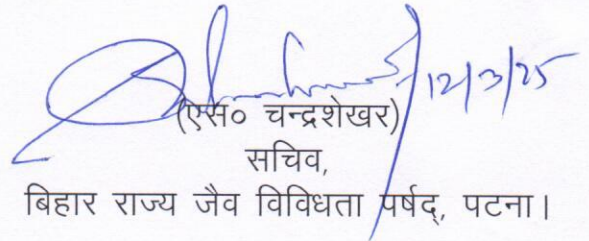 12/3/25
(एस० चन्द्रशेखर)
सचिव,
बिहार राज्य जैव विविधता पर्षद्, पटना।